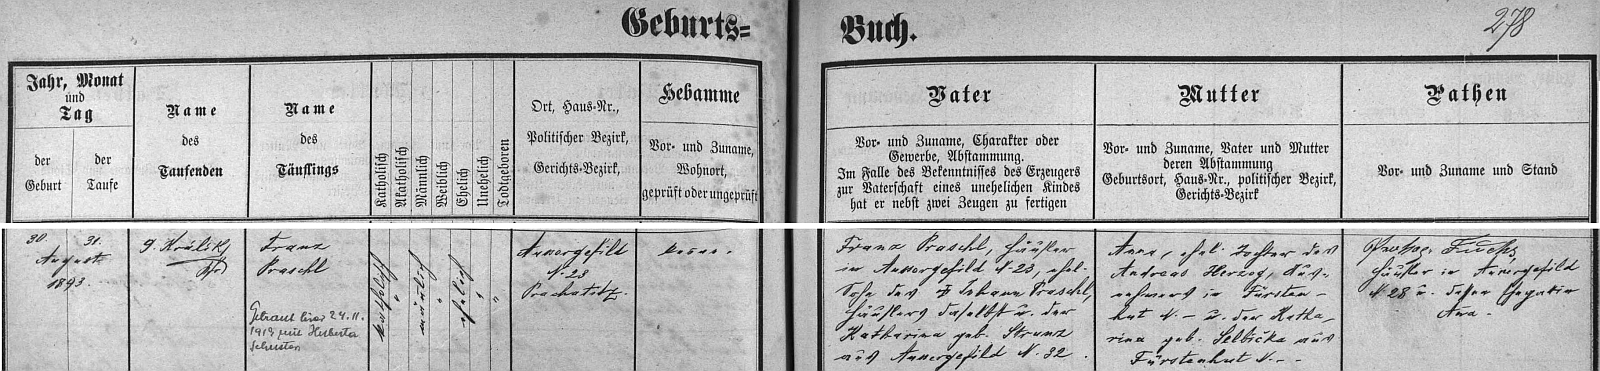 Geburts=
Buch.
278
Jahr, Monat
und
Tag
der
Geburt
der
Taufe
Name
des
Taufenden
Name
des
Täuflings
Katholisch
Akatholisch
Männlich
Weiblich
Ehelich
Unehelich
Todtgeboren
Ort, Haus-Nr.,
Politischer Bezirk,
Gerichts-Bezirk,
Hebamme
Vor- und Zuname,
Wohnort,
geprüft oder ungeprüft
Vater
Vor- und Zuname, Charakter oder
Gewerbe, Abstammung.
Im Falle des Bekenntnisses des Erzeugers
zur Vaterschaft eines unehelichen Kindes
hat er nebst zwei Zeugen zu fertigen
Mutter
Vor- und Zuname, Vater und Mutter
deren Abstammung
Geburtsort, Haus-Nr., politischer Bezirk,
Gerichts-Bezirk
Pathen
Vor- und Zuname und Stand
30. 31.
August
1893.
J. Králik
Franz
Praschl
Getraut hier 24.11.
1919 mit Herberta
Schuster
katholisch
"
männlich
"
ehelich
"
"
Aussergefild
N. 28
Prachatitz.
Franz Praschl, Häusler
in Aussergefild N. 23, ehel.
Sohn des Johann Praschl,
Häuslers daselbst u. der
Katharina geb. Stranz
aus Aussergefild N. 32.
Anna, ehel. Tochter des
Andreas Herzog, Aus-
nehmers in Fürsten-
hut N. – u. der Katha-
rina geb. Selbička aus
Fürstenhut N. –
Fuchs,
Häusler in Aussergefild
N. 28 u. dessen Ehegattin